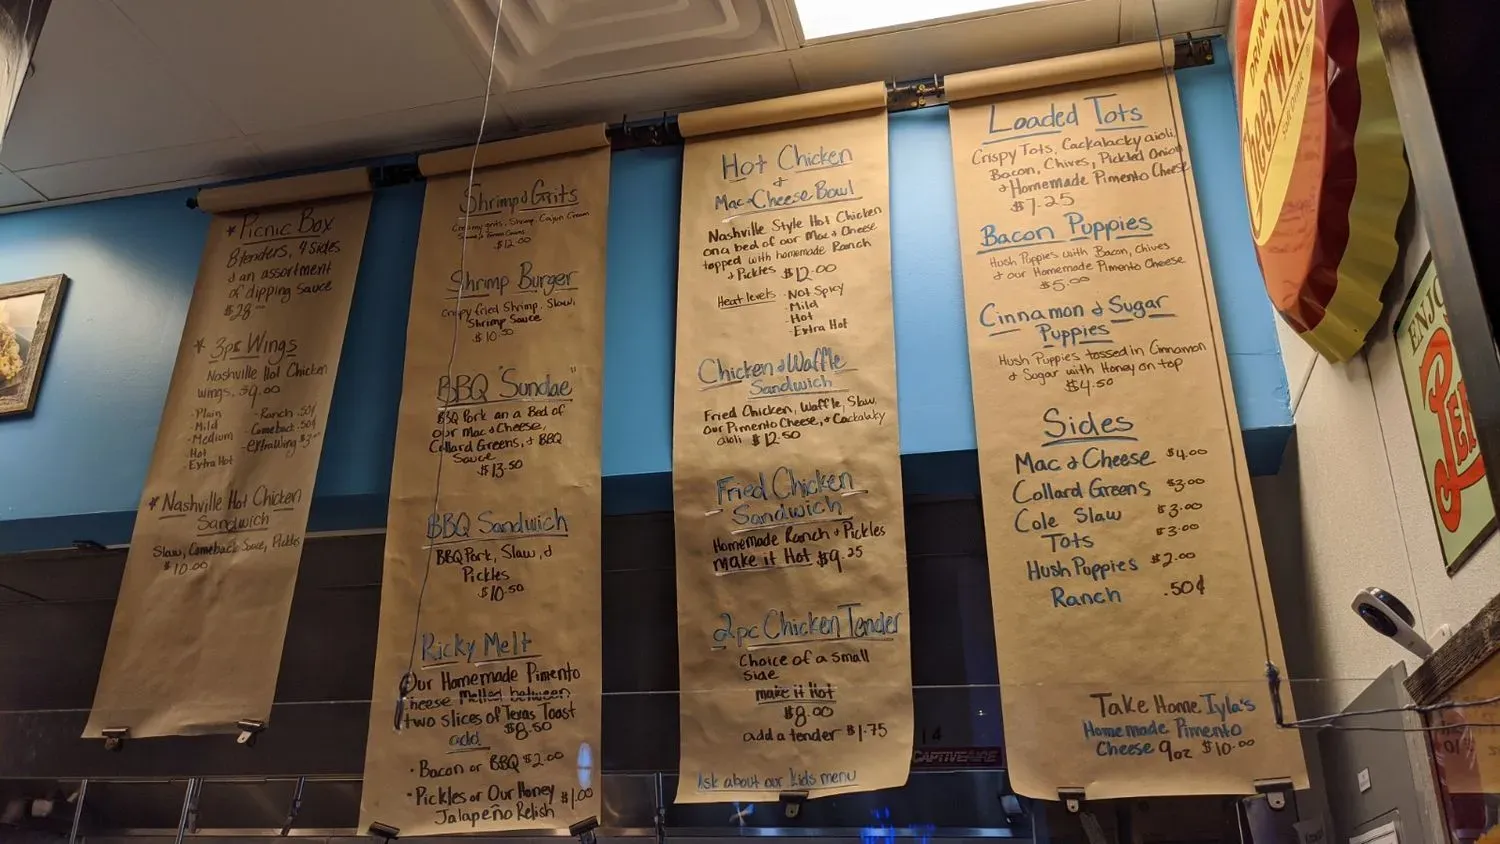 * Picnic Box
8 tenders, 4 sides
& an assortment
of dipping sauce
$28.00
* 3pc Wings
Nashville Hot Chicken
wings. $9.00
- Plain
- Mild
- Medium
- Hot
- Extra Hot
- Ranch .50¢
- Comeback .50¢
- extra wing $3.00
* Nashville Hot Chicken
Sandwich
Slaw, Comeback Sauce, Pickles
$10.00
Shrimp & Grits
Creamy grits, Shrimp, Cajun Cream
Sauce & Green Onions
$12.00
Shrimp Burger
Crispy fried Shrimp, Slaw,
Shrimp Sauce
$10.50
BBQ "Sundae"
BBQ Pork on a Bed of
our Mac & Cheese,
Collard Greens, & BBQ
Sauce
$13.50
BBQ Sandwich
BBQ Pork, Slaw, &
Pickles
$10.50
Ricky Melt
Our Homemade Pimento
cheese Melted between
two slices of Texas Toast
$8.50
add
• Bacon or BBQ $2.00
• Pickles or Our Honey $1.00
Jalapeño Relish
Hot Chicken
&
Mac & Cheese Bowl
Nashville Style Hot Chicken
on a bed of our Mac & Cheese
topped with homemade Ranch
& Pickles $12.00
Heat levels
- Not Spicy
- Mild
- Hot
- Extra Hot
Chicken & Waffle
Sandwich
Fried Chicken, Waffle, Slaw,
Our Pimento Cheese, & Cackalaky
aioli $12.50
Fried Chicken
Sandwich
Homemade Ranch & Pickles
make it Hot $9.25
2pc Chicken Tender
Choice of a small
side
make it Hot
$8.00
add a tender $1.75
Ask about our kids menu
Loaded Tots
Crispy Tots, Cackalacky aioli,
Bacon, Chives, Pickled Onion
& Homemade Pimento Cheese
$7.25
Bacon Puppies
Hush Puppies with Bacon, Chives
& our Homemade Pimento Cheese
$5.00
Cinnamon & Sugar
Puppies
Hush Puppies tossed in Cinnamon
& Sugar with Honey on top
$4.50
Sides
Mac & Cheese $4.00
Collard Greens $3.00
Cole Slaw $3.00
Tots $3.00
Hush Puppies $2.00
Ranch .50¢
Take Home Iyla's
Homemade Pimento
Cheese 9oz $10.00
DRINK
Cheerwine
ENJOY
CAPTIVEAIRE